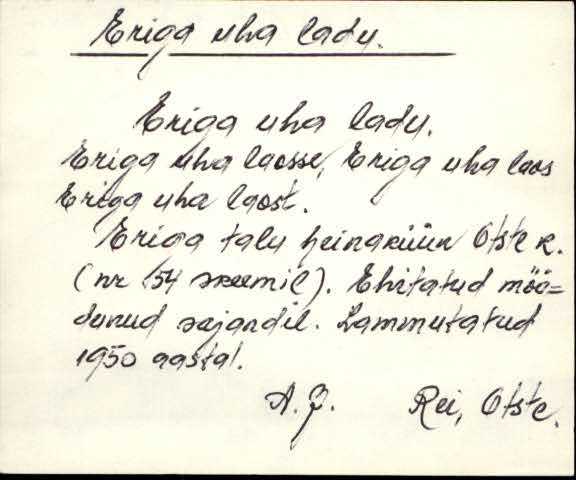 Eriga uha ladu.
Eriga uha ladu.
Eriga uha laosse, Eriga uha laos
Eriga uha laost.
Eriga talu heinaküün Otste k.
(nr 154 skeemil). Ehitatud möö=
dunud sajandil. Lammutatud
1950 aastal.
A. J. Rei, Otste.